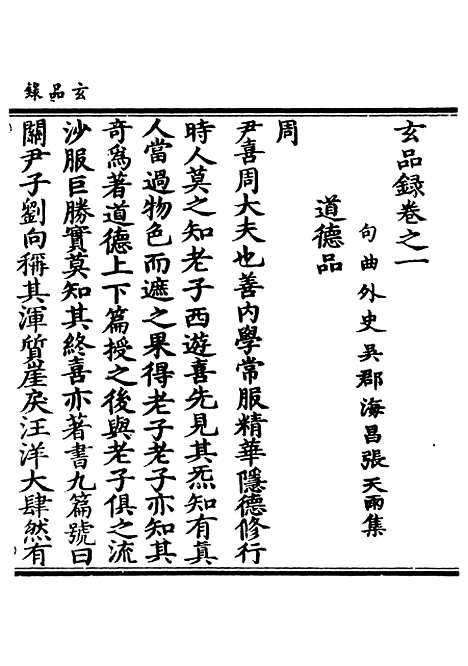 玄品錄
玄品錄卷之一
句曲外史吳郡海昌張天雨集
道德品
周
尹喜周大夫也善內學常服精華隱德修行
時人莫之知老子西遊喜先見其炁知有眞
人當過物色而遮之果得老子老子亦知其
奇爲著道德上下篇授之後與老子俱之流
沙服巨勝實莫知其終喜亦著書九篇號曰
關尹子劉向稱其渾質崖戾汪洋大肆然有